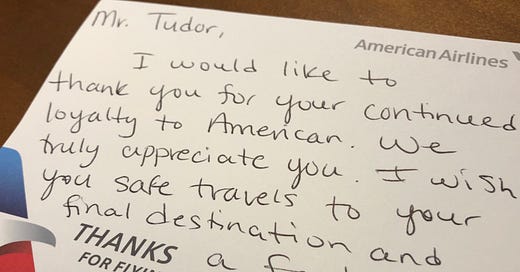 Mr. Tudor,
American Airlines
I would like to
thank you for your continued
loyalty to American. We
truly appreciate you. I wish
you safe travels to your
final destination and
THANKS a
FOR